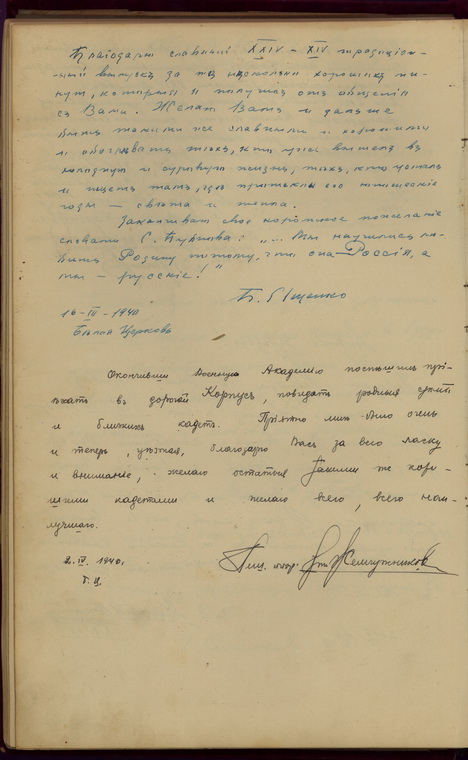 Благодарю славный XXIV – XIV традицiон-
ный выпускъ за тѣ нѣсколько хорошихъ ми-
нутъ, которыя я получилъ отъ общенiя
съ Вами. Желаю Вамъ и дальше
быть такими же славными и хорошими
и обогрѣвать тѣхъ, кто уже вышелъ въ
холодную и суровую жизнь, тѣхъ, кто усталъ
и ищетъ тамъ, гдѣ протекли его юношескiе
годы — свѣта и тепла.
Заканчиваю свое короткое пожеланiе
словами С. : "... Вы научились лю-
бить Родину потому, что она — Россiя, а
мы — русскiе!"
Б. Ищенко
16-IV-1940
Бѣлая Церковь
Окончивши Военную Академiю поспѣшилъ прi-
ѣхать въ дорогой Корпусъ, повидать родныя стѣны
и близкихъ кадетъ. Прiятно мнѣ было очень
и теперь, уѣзжая, благодарю Васъ за всю ласку
и вниманiе, желаю остаться такими же хоро-
шими кадетами и желаю всего, всего наи-
лучшаго.
2.IV.1940.
Б. Ц.
Жемчужниковъ